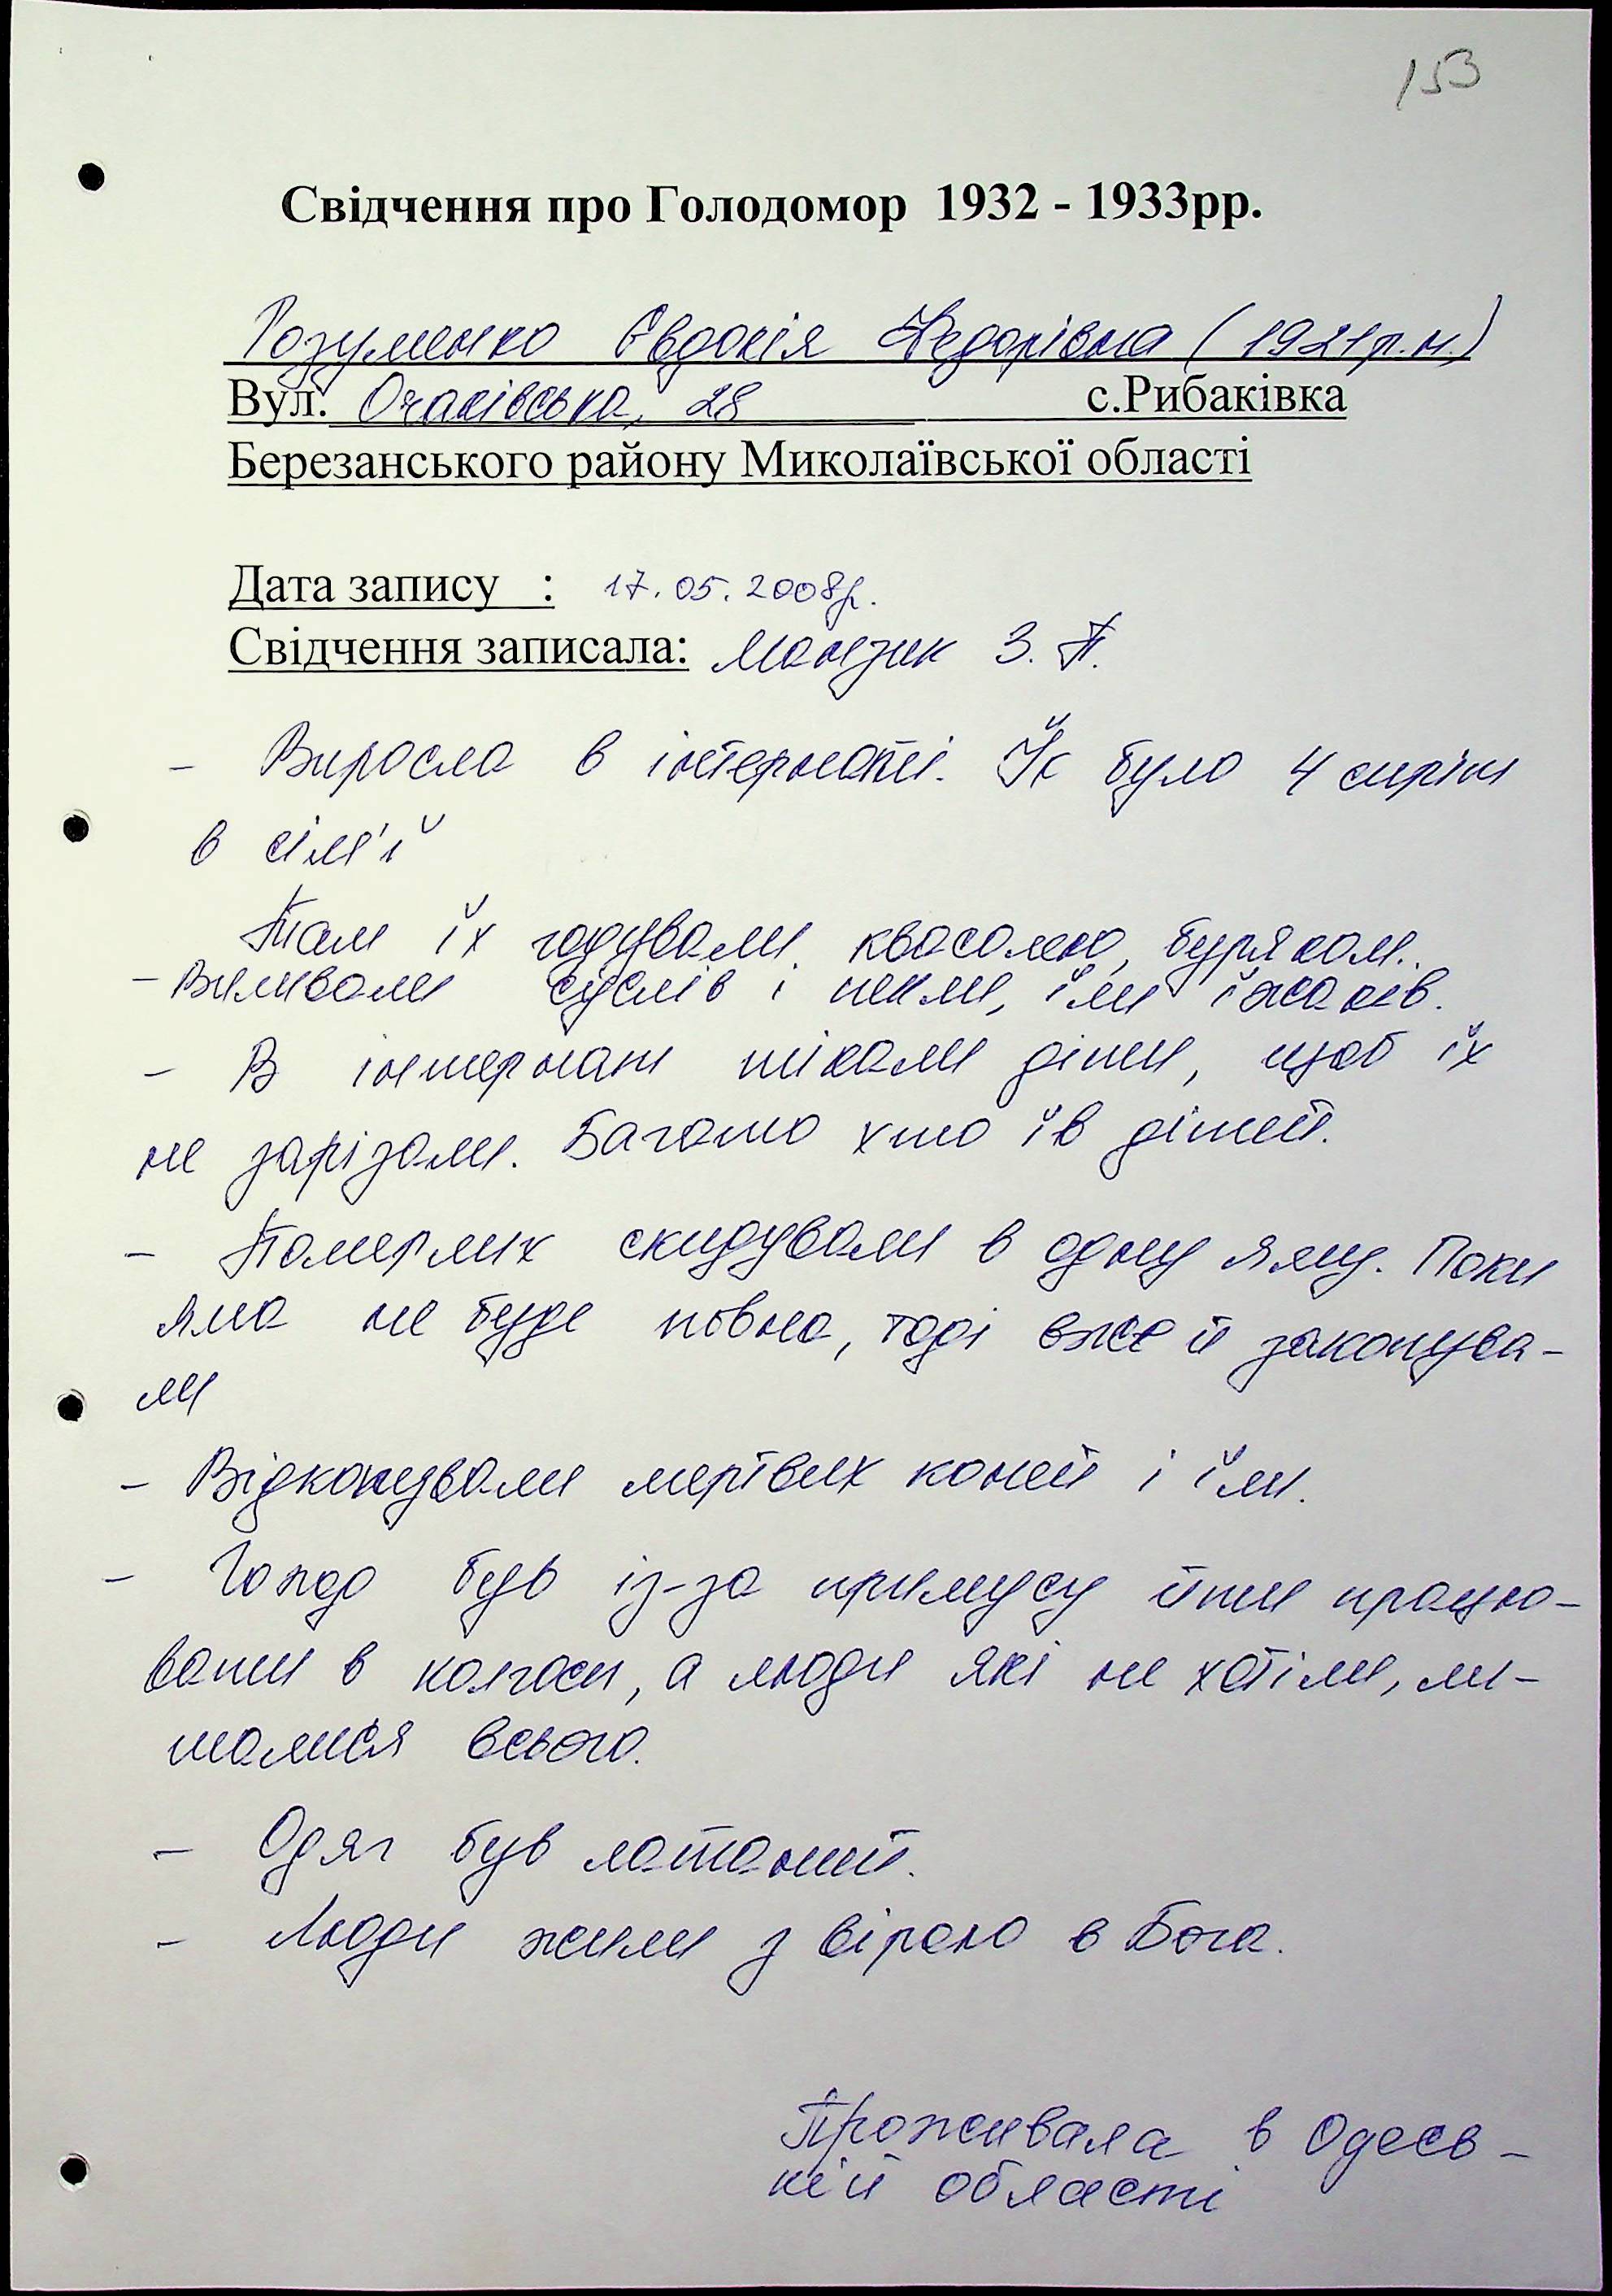 153
Свідчення про Голодомор 1932 - 1933рр.
Розуменко Євдокія Федорівна (1921р.н.)
Вул. Очаківська, 28 с.Рибаківка
Березанського району Миколаївської області
Дата запису : 17.05.2008р.
Свідчення записала: З. П.
- Виросла в інтернаті. Їх було 4 сиріт
в сім'ї
Там їх годували квасолею, буряком.
- Виливали суслів і пекли, їли їжаків.
- В інтернат тікали діти, щоб їх
не зарізали. Багато хто їв дітей.
- Померлих скидували в одну яму. Поки
яма не буде повна, тоді вже й закопува-
ли
- Відкопували мертвих коней і їли.
- Голод був із-за примусу йти працю-
вати в колгосп, а люди які не хотіли, ли-
шалися всього.
- Одяг був латаний.
- Люди жили з вірою в Бога.
Проживала в Одесь-
кій області